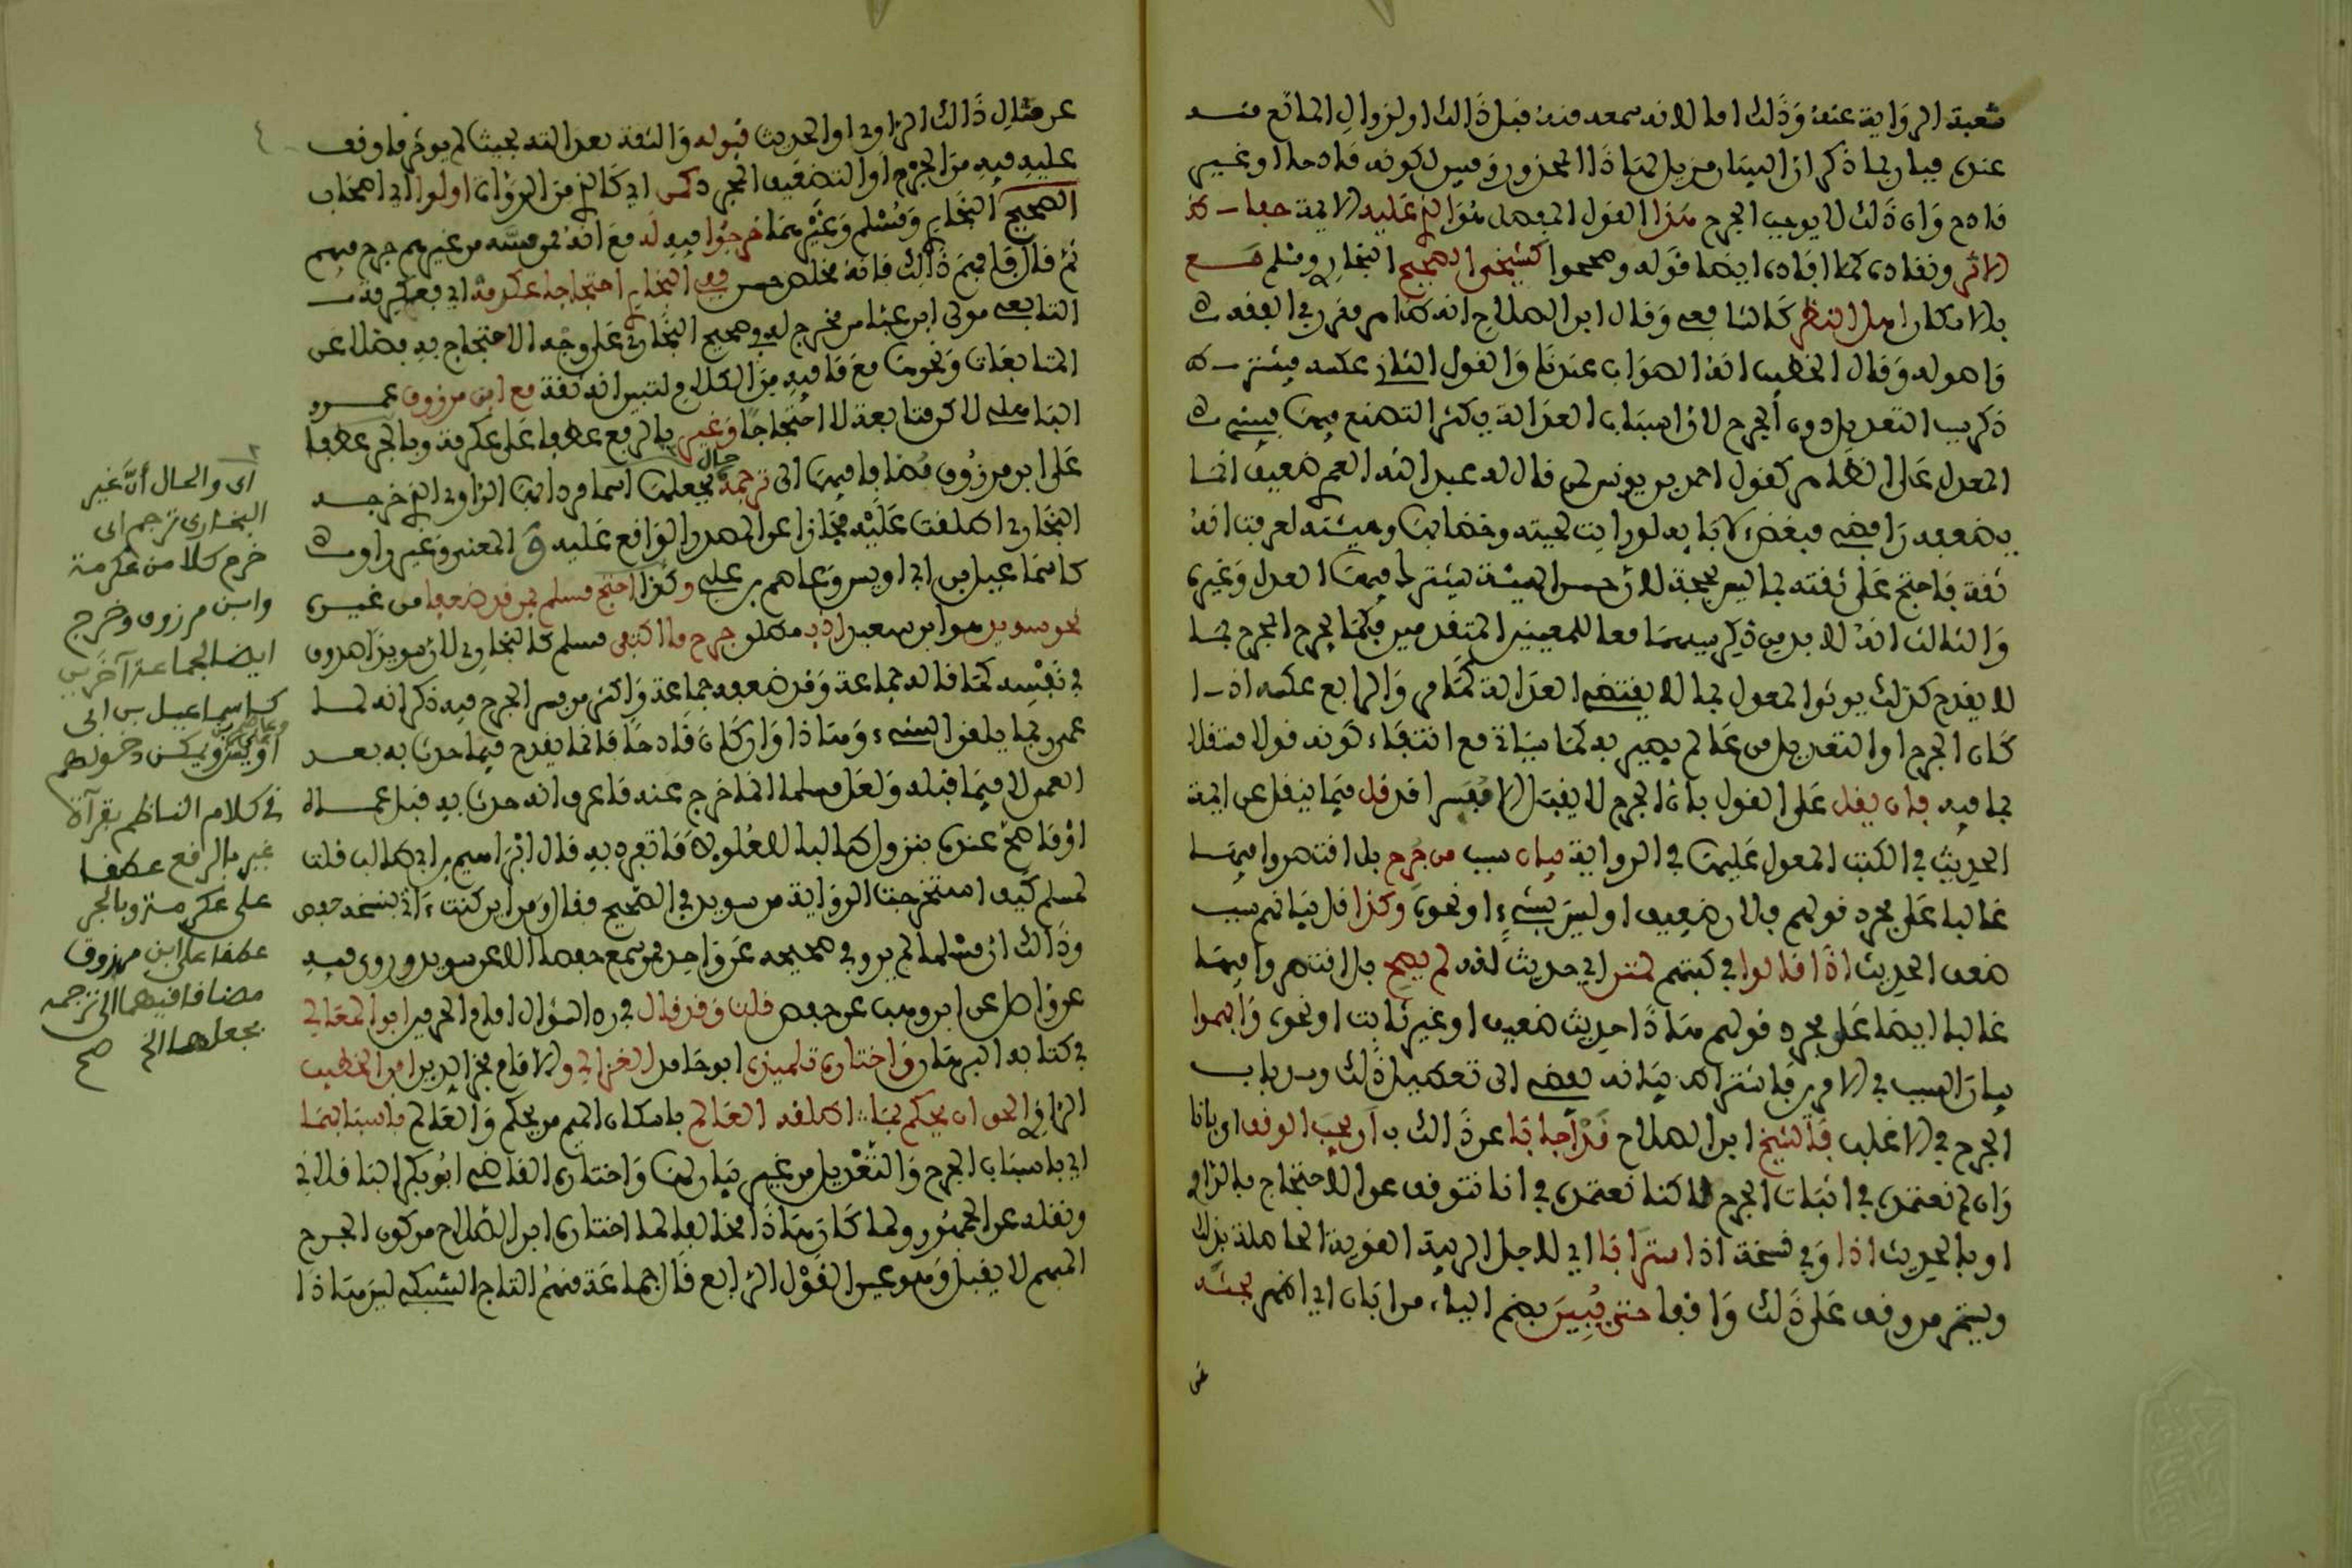 شعبة الرواية عنه وذلك اما لانه سمعه منه قبل ذالك اولزوال المانع منه
عنده فبان بما ذكر ان البيان مزيل لهاذا المحذور ومبين لكونه قادحا او غير
قادح وان ذلك لا يوجب الجرح هذا القول المفصل هو الذي عليه الايمة حفاظ
الاثر ونقاده كما افاده ايضا قوله وصححوا كشيخي الصحيح البخاري ومسلم مع
بلا انكار اهل النظر كالشافعي وقال ابن الصلاح انه ظاهر مقرر في الفقه
واصوله وقال الخطيب انه الصواب عندنا والقول الثاني عكسه فيشترط
ذكر سبب التعديل دون الجرح لان اسباب العدالة يكثر التصنع فيها فيبني
المعدل على الظاهر كقول احمد بن يونس لمن قال له عبد الله العمري ضعيف انما
يضعفه رافضي مبغض لابايه لو رايت لحيته وخضابها وهيئته لعرفت انه
ثقة فاحتج على ثقته بما ليس بحجة لان حسن الهيئة يشترك فيها العدل وغيره
والثالث انه لا بد من ذكر سببهما معا للمعنيين المتقدمين فكما يجرح الجرح بما
لا يقدح كذلك يوثق المعدل بما لا يقتضي العدالة كما مر والرابع عكسه اذا
كان الجرح او التعديل من عالم بصير به كما سياتي مع انتقاء كونه قولا مستقلا
بما فيه فان يقل على القول بان الجرح لا يقبل الا مفسرا قد قل فيما ينقل عن ايمة
الحديث في الكتب المعول عليها في الرواية بيان سبب من جرح بل اقتصروا فيها
غالبا على مجرد قولهم فلان ضعيف او ليس بشيء او نحوه وكذا قل بيانهم سبب
ضعف الحديث اذا قالوا في كتبهم لمتن اي حديث انه لم يصح بل اقتصروا فيها
غالبا ايضا على مجرد قولهم هاذا حديث ضعيف او غير ثابت او نحوه وابهموا
بيان السبب في الامرين فاشتراط بيانه يفضي الى تعطيل ذلك وسد باب
الجرح في الاغلب فالشيخ ابن الصلاح قد اجابا عن ذالك ب ان يجب الوقف اي بانا
وان لم نعتمده في اثبات الجرح لاكنا نعتمده في انا نتوقف عن الاحتجاج بالراوي
او بالحديث اذا وفي نسخة اذ استرابا اي لاجل الريبة القوية الحاصلة بذلك
ويستمر من وقف على ذلك واقفا حتى يبين بضم الياء من ابان اي اظهر بحثه
عن
عن مثال ذالك الراوي او الحديث قبوله والثقة بعدالته بحيث لم يوثر ما وقف
عليه فيه من الجرح او التضعيف المجرد كمن اي كالذي من الرواة اولوا اي اصحاب
الصحيح البخاري ومسلم وغيرهما خرجوا فيه له مع انه ممن مسه من غيرهم جرح مبهم
ثم قال فافهم ذالك فانه مخلص حسن ففي البخاري احتجاجا عكرمة اي فعكرمة
التابعي مولى ابن عباس مخرج له في صحيح البخاري على وجه الاحتجاج به فضلا عن
المتابعات ونحوها مع ما فيه من الكلام لتبين انه ثقة مع ابن مرزوق عمرو
الباهلي لاكن متابعة لا احتجاجا وغير بالرفع عطفا على عكرمة وبالجر عطفا
على ابن مرزوق مضافا فيها الى ترجمة بجعلها اسما مرادا بها الراوي الذي خرج
حال
البخاري اطلقت عليه مجازا عن المصدر الواقع عليه المعنى وغير راو
كاسماعيل بن ابي اويس وعاصم بن علي وكذا احتج مسلم بمن قد ضعفا من غيره
نحو سويد هو ابن سعيد اذ بمطلق جرح ما اكتفى مسلم كالبخاري لان سويدا صدوق
في نفسه كما قاله جماعة وقد ضعفه جماعة واكثر من فسر الجرح فيه ذكر انه لما
عمي ربما يلقن الشيء وهاذا وان كان قادحا فانما يقدح فيما حدث به بعد
العمى لا فيما قبله ولعل مسلما انما خرج عنه ما عرف انه حدث به قبل عماه
او ما صح عنده بنزول طالبا للعلو لا ما تفرد به قال ابراهيم بن ابي طالب قلت
لمسلم كيف استخرجت الرواية عن سويد في الصحيح فقال ومن اين كنت ءاتي بنسخة حفص
وذالك ان مسلما لم يرو في صحيحه عن واحد ممن سمع حفصا الا عن سويد وروى فيه
عن واحد عن ابن وهب عن حفص قلت وقد قال في رد السؤال امام الحرمين ابو المعالي
في كتابه البرهان واختاره تلميذه ابو حامد الغزالي والامام فخر الدين ابن الخطيب
الرازي الحق ان يحكم بما اطلقه العالم باسكان الميم من يحكم والعالم باسبابهما
اي باسباب الجرح والتعديل من غير بيان لها واختاره القاضي ابو بكر الباقلاني
ونقله عن الجمهور ولما كان هاذا مخالفا لما اختاره ابن الصلاح من كون الجرح
المبهم لا يقبل وهو عين القول الرابع قال جماعة منهم التاج السبكي ليس هاذا
اى والحال أنّ غير
البخاري ترجم اى
خرم كلا من عكرمة
وابن مرزوق وخرج
ايضا لجماعة آخرين
كاسماعيل بن ابى
وعاصم بن على
أويس ويكون دخولهم
فى كلام الناظم بقرآة
غير بالرفع عطفا
على عكرمة وبالجر
عطفا على ابن مرزوق
مضافا فيهما الى ترجمه
بجعلها الخ صح